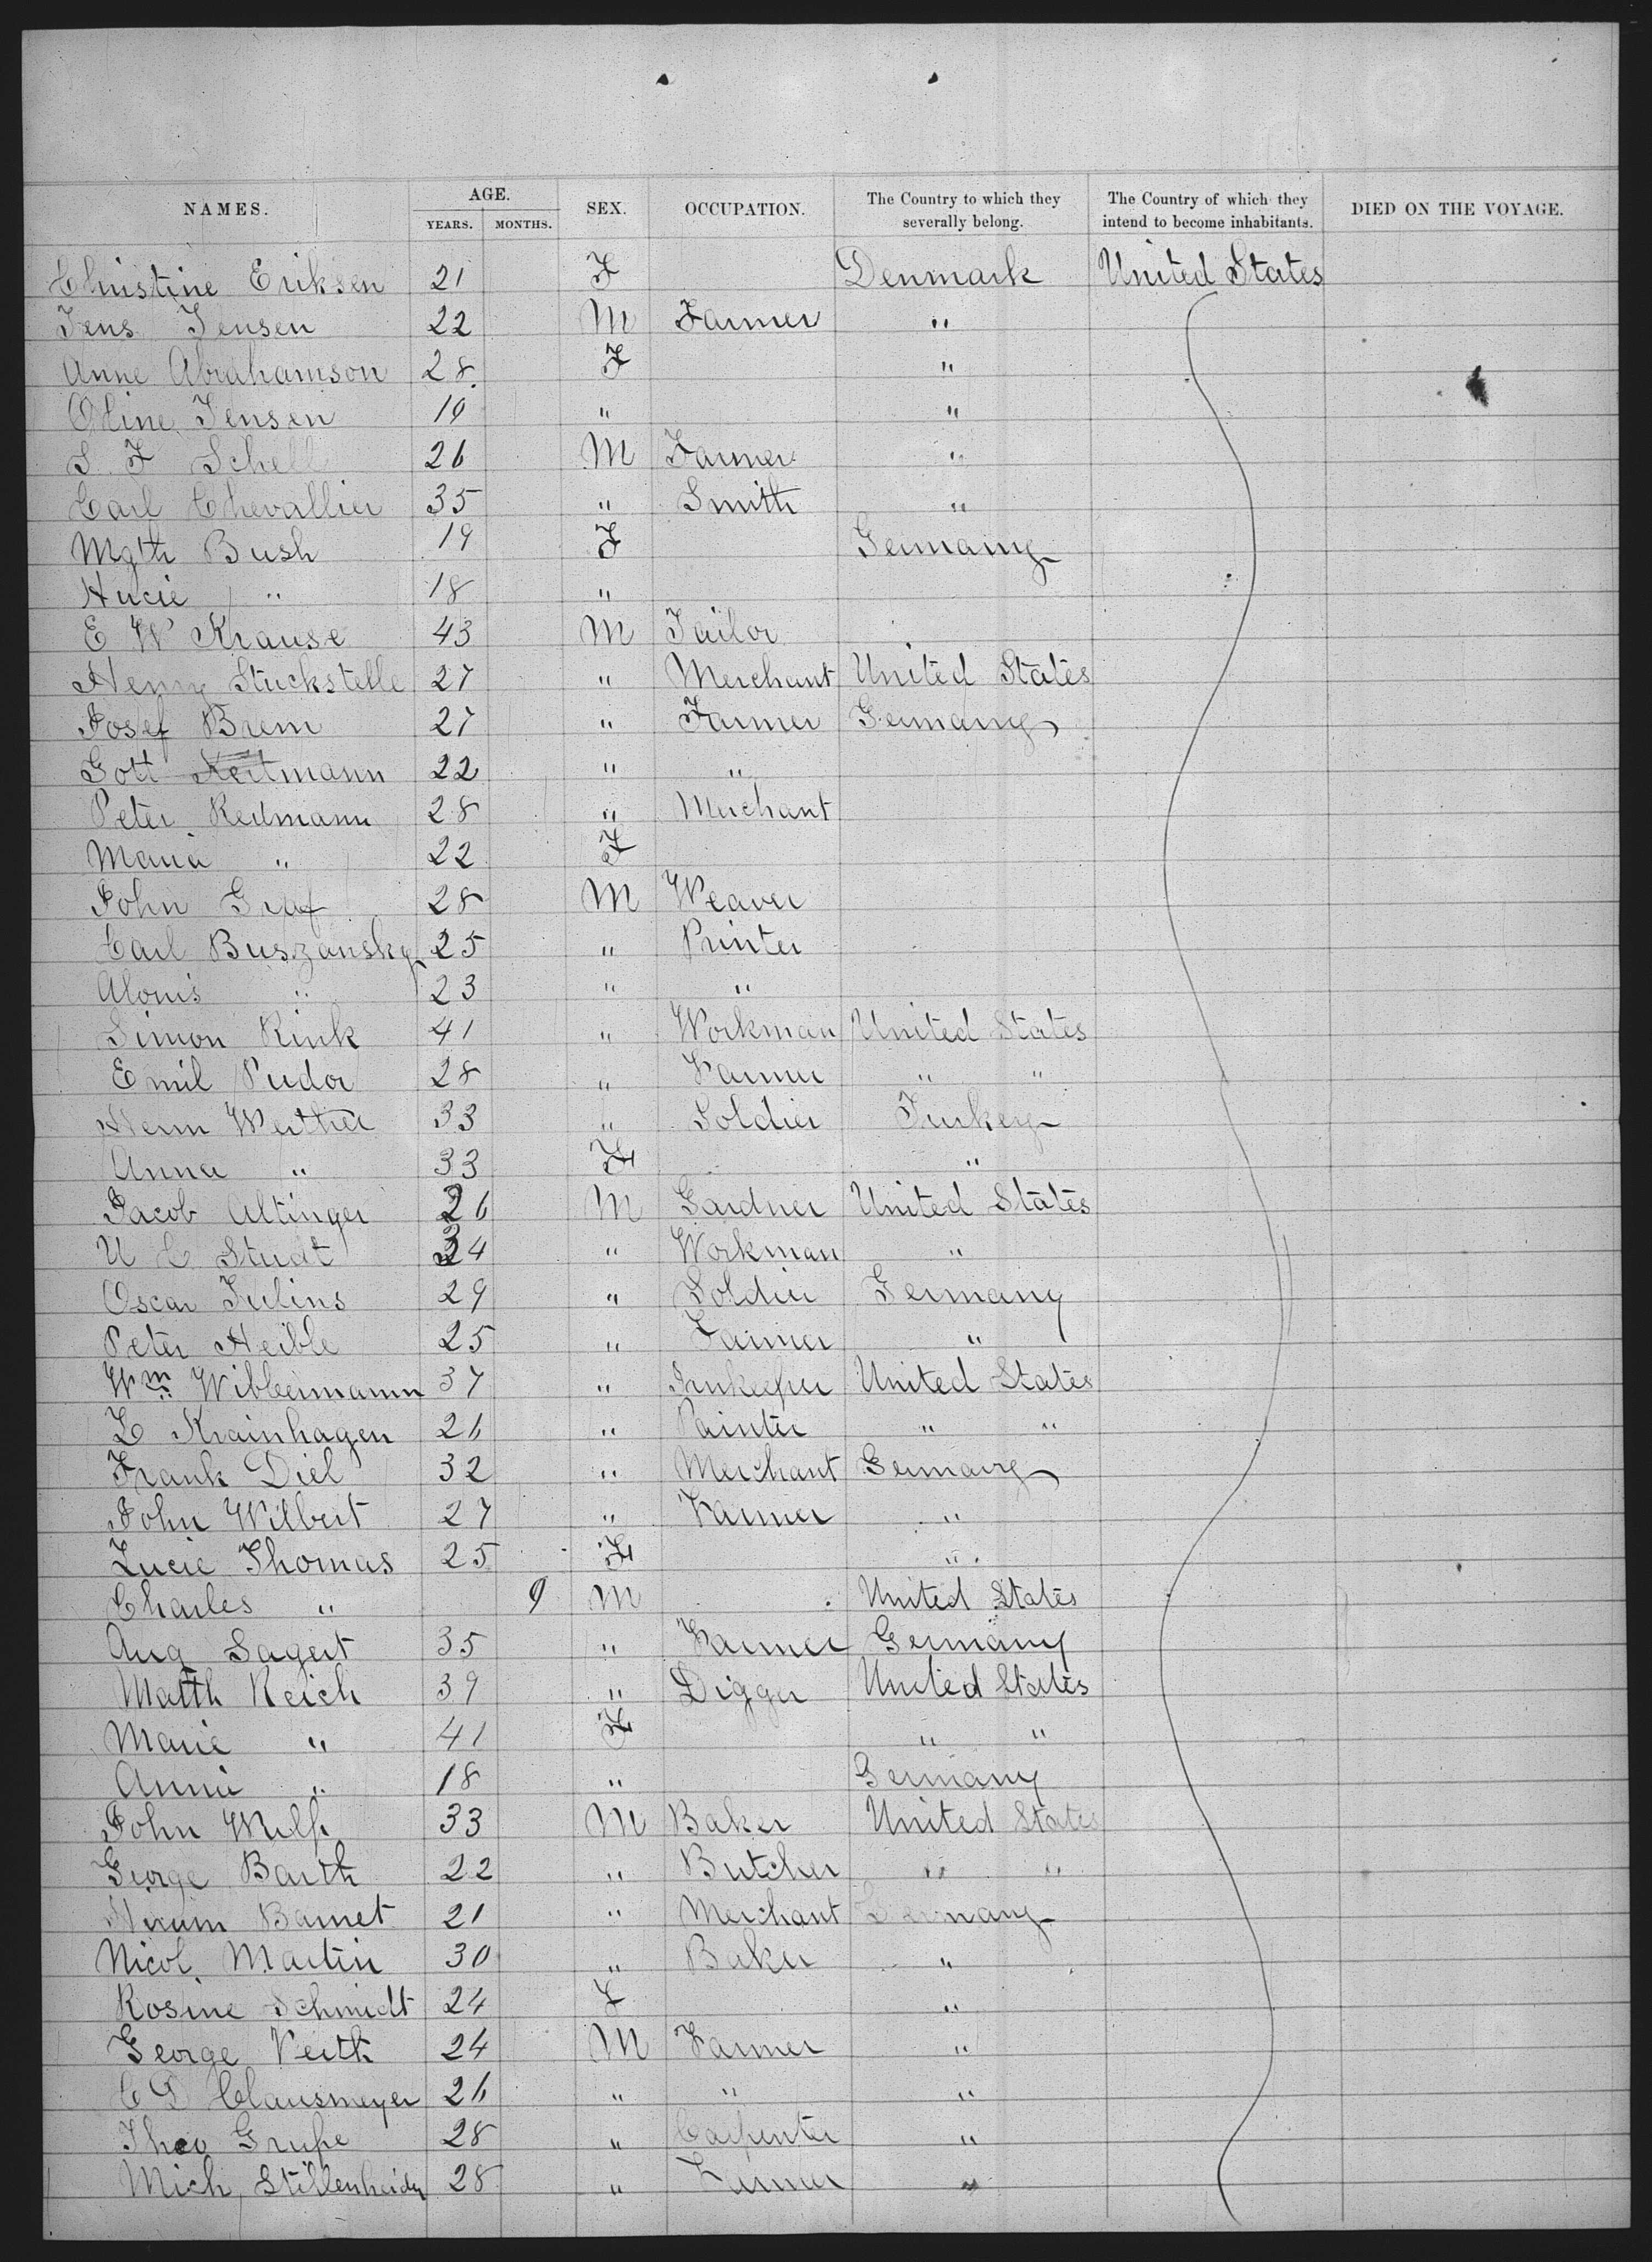 NAMES. AGE. SEX. OCCUPATION. The Country to which they severally belong. The Country of which they intend to become inhabitants. DIED ON THE VOYAGE.
YEARS. MONTHS.
Christine Eriksen 21 F Denmark United States
Jens Jensen 22 M Farmer "
Anne Abrahamson 28 F "
Oline Jensen 19 " "
S. F Schell 26 M Farmer "
Carl Chevallier 35 " Smith "
Mgth Bush 19 F Germany
" 18 "
E W Krause 43 M Tailor
Henry Stuckstelle 27 " Merchant United States
Josef Brem 27 " Farmer Germany
Gott 22 " "
Peter Redmann 28 " Merchant
Maria " 22 F
John Graf 28 M Weaver
Carl Buszansky 25 " Printer
Alonis " 23 " "
Simon Rink 41 " Workman United States
Emil Pudor 28 " Farmer " "
Herm Werther 33 " Soldier Turkey
Anna " 33 F "
Jacob Altinger 26 M Gardner United States
U C Studt 34 " Workman "
Oscar Julins 29 " Soldier Germany
Peter Heible 25 " Farmer "
Wm Wibbermann 37 " Innkeeper United States
L Krainhagen 26 " Painter " "
Frank Diel 32 " Merchant Germany
John Wilbert 27 " Farmer "
Lucie Thomas 25 F "
Charles " 9 M United States
Aug Sagert 35 " Farmer Germany
Matth Reich 39 " Digger United States
Marie " 41 F " "
Annie " 18 " Germany
John 33 M Baker United States
George Barth 22 " Butcher " "
Barnet 21 " Merchant Germany
Nicol. Martin 30 " Baker "
Rosine Schmidt 24 F "
George Veith 24 M Farmer "
C D Clausmeyer 26 " " "
Theo Grupe 28 " Carpenter "
Mich Stillenheider 28 " Farmer "